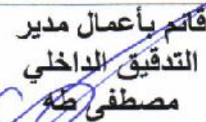 قائم بأعمال مدير
التدقيق الداخلي
مصطفى طه